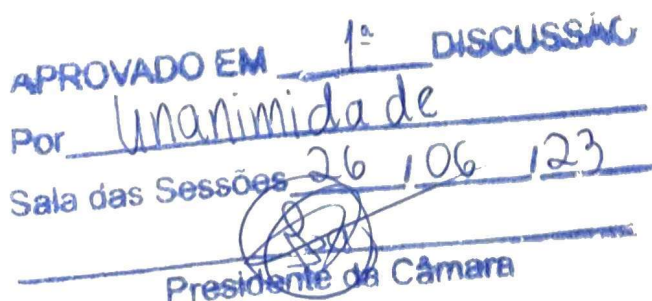 APROVADO EM 1ª DISCUSSÃO
Por Unanimidade
Sala das Sessões 26 / 06 / 23
Presidente da Câmara